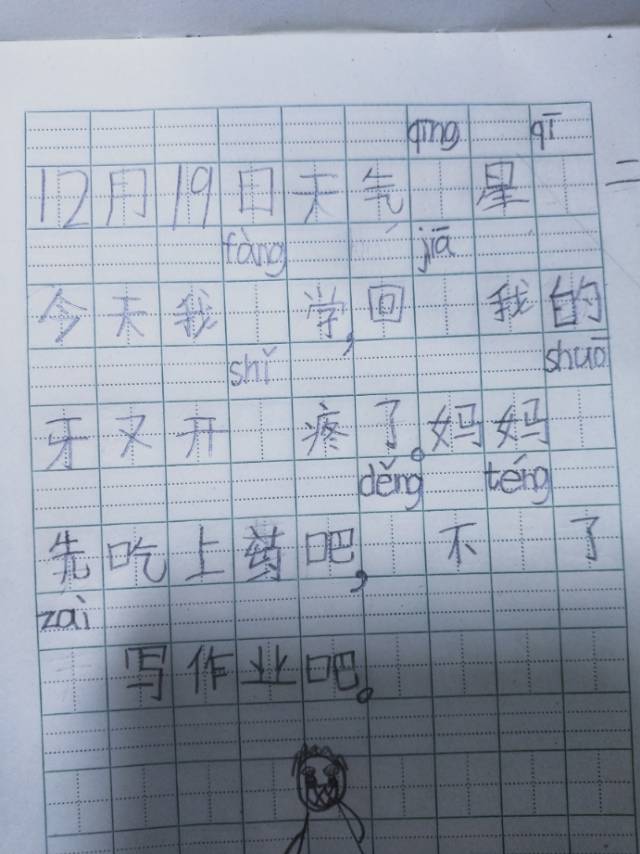 qíng qī
12月19日天气 星 二
fàng jiā
今天我 学,回 我的
shǐ shuō
牙又开 疼了。妈妈
děng téng
先吃上药吧, 不 了
zài
写作业吧。